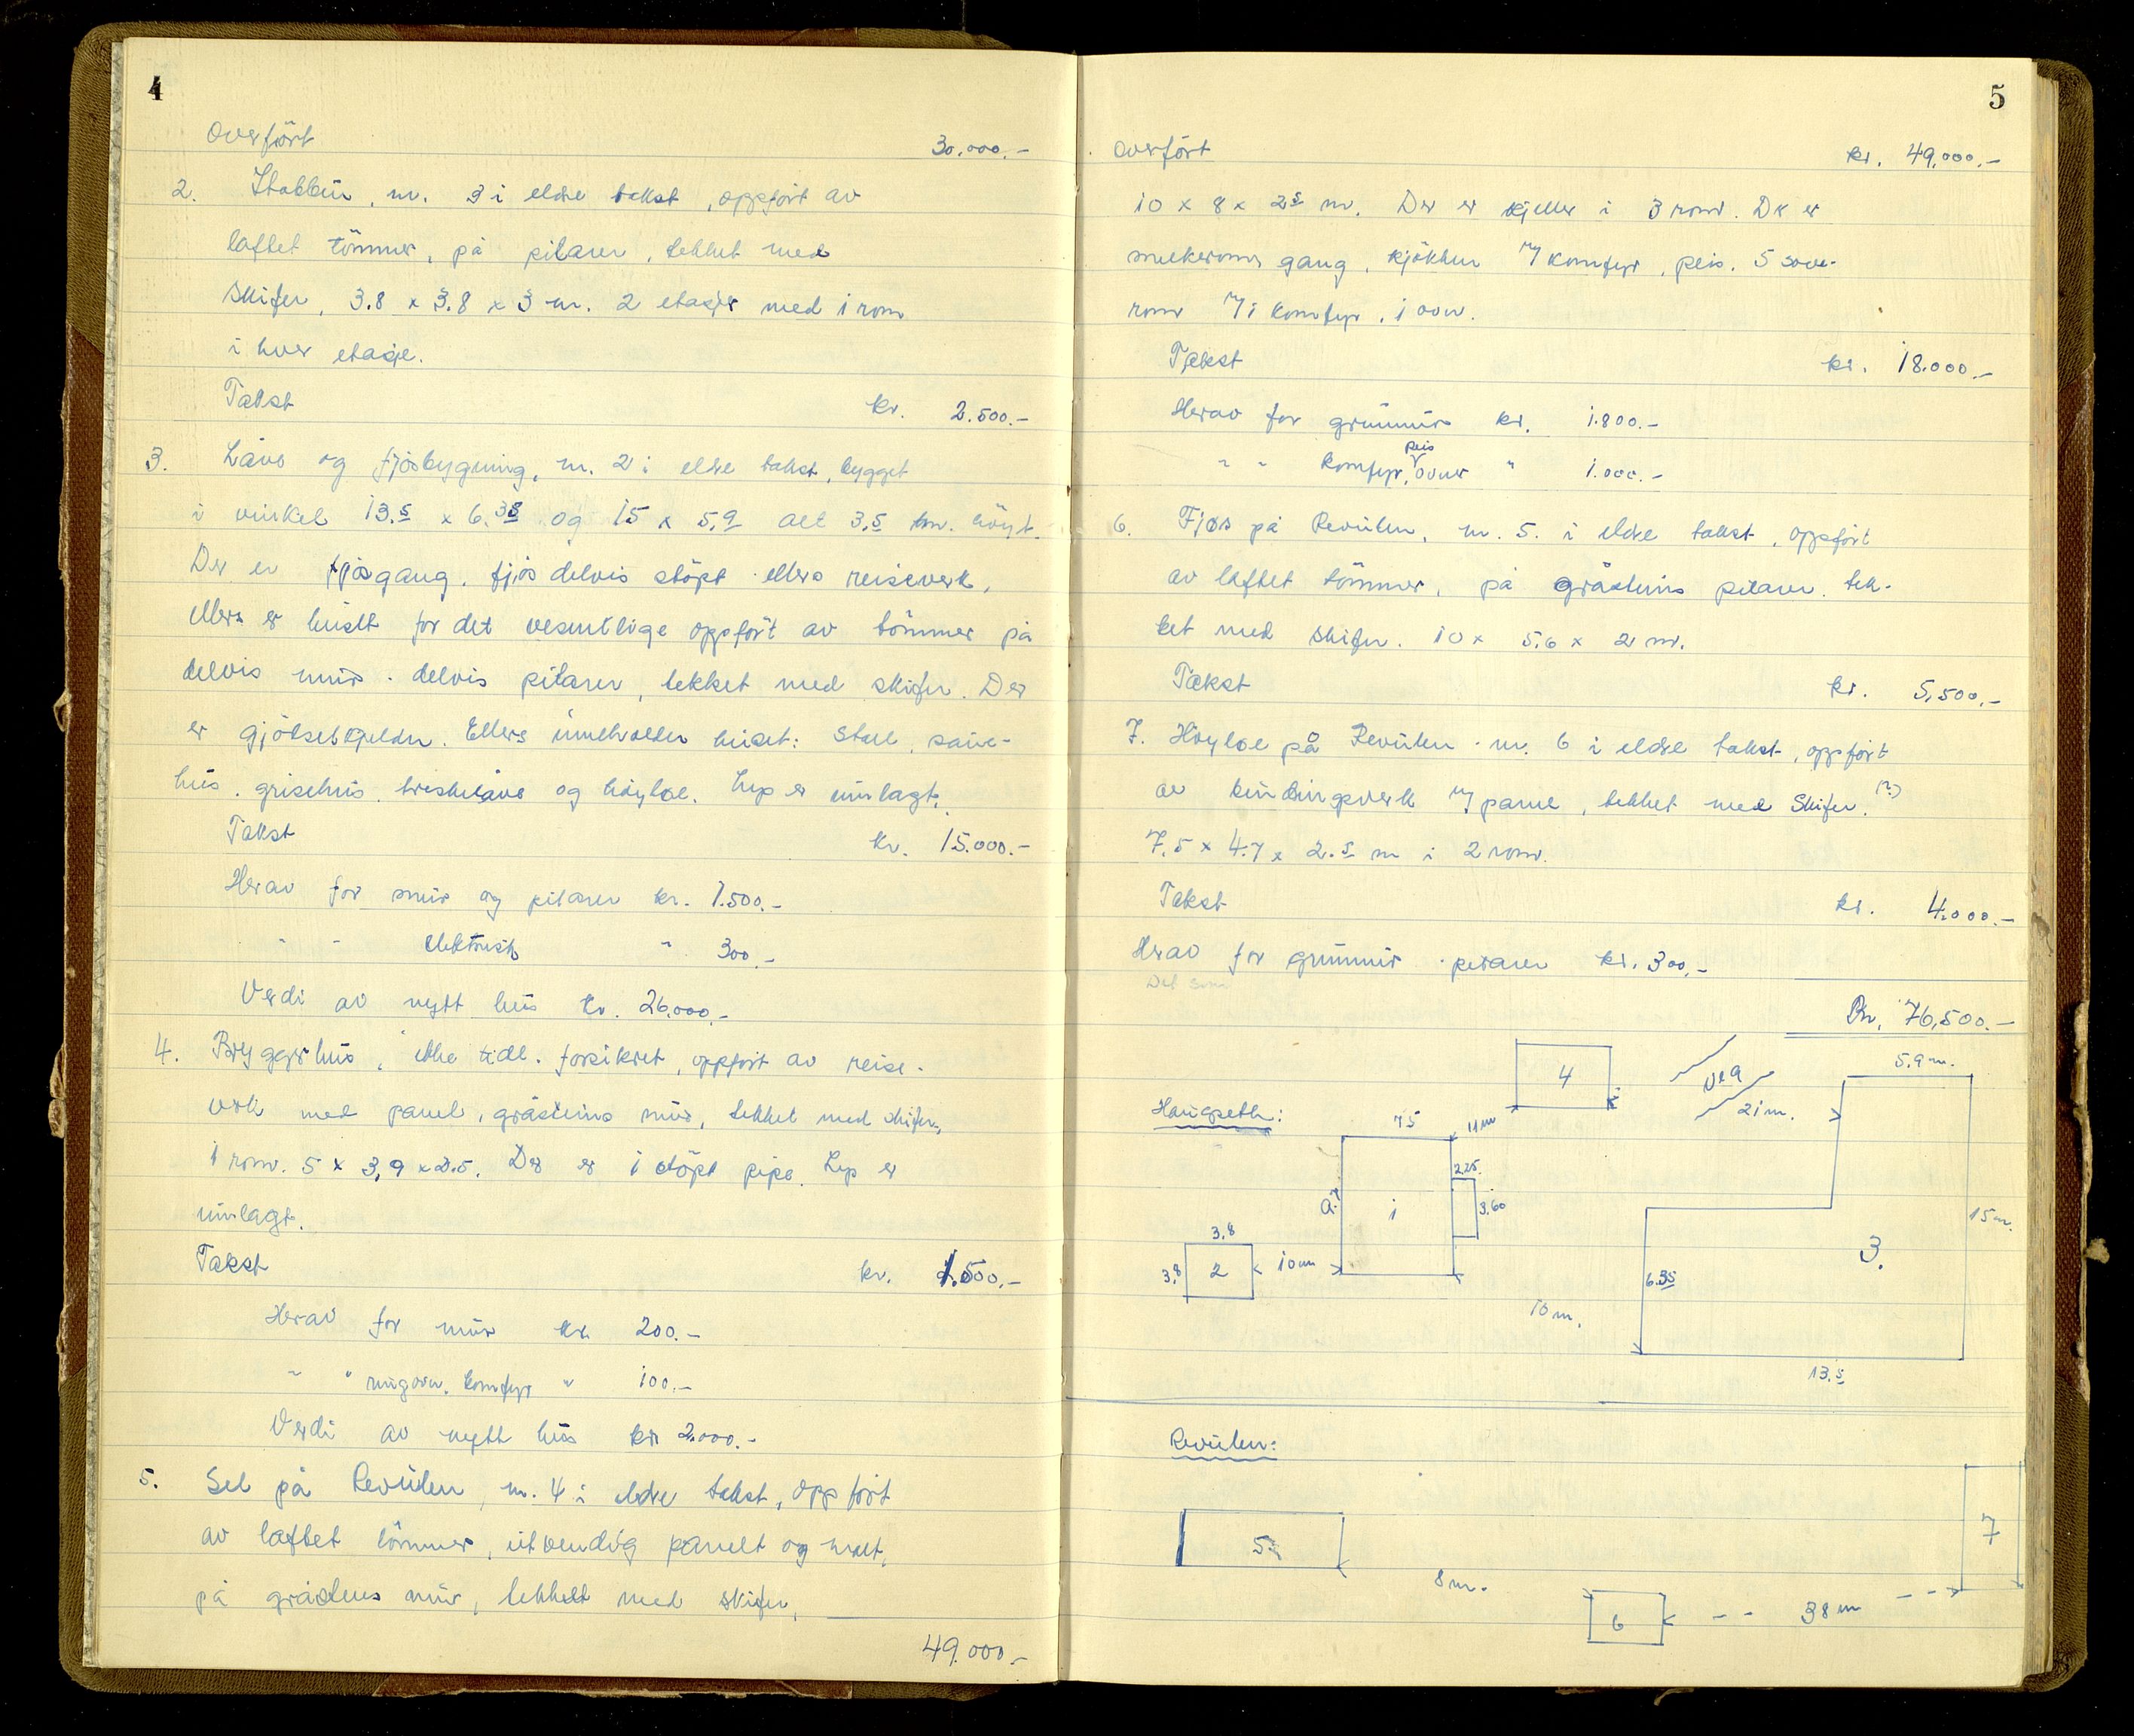 4
Overført 30.000.-
2. Stabbur, nr. 3 i eldre takst, oppført av
laftet tömmer, på pilarer, tekket med
skifer, 3.8 x 3.8 x 3 m. 2 etasjer med 1 rom
i hver etasje.
Takst kr. 2.500.-
3. Låve og fjösbygning, nr. 2 i eldre takst, bygget
i vinkel 13.5 x 6.35 og 15 x 5.9 alt 3.5 m. höyt.
Der er fjösgang, fjös delvis stöpt ellers reiseverk,
ellers er huset for det vesentlige oppfört av tömmer på
delvis mur - delvis pilarer, tekket med skifer. Der
er gjödselkjeller. Ellers inneholder huset: Stall, saue-
hus, grisehus, treskelåve og höyloe. Lys er innlagt.
Takst kr. 15.000.-
Herav for mur og pilarer kr. 1.500.-
" " elektrisk " 300.-
Verdi av nytt hus kr. 26.000.-
4. Bryggerhus, ikke tidl. forsikret, oppfört av reise-
verk med panel, gråsteins mur, tekket med skifer,
1 rom. 5 x 3,9 x 2.5. Der er 1 stöpt pipe. Lys er
innlagt.
Takst kr. 1.500.-
Herav for mur kr. 200.-
" " komfyr " 100.-
Verdi av nytt hus kr 2.000.-
5. Sel på Revulen, nr. 4 i eldre takst, oppfört
av laftet tömmer, utvendig panelt og malt,
på gråsteins mur, tekket med skifer,
49.000.-
5
Overfört kr. 49.000.-
10 x 8 x 2.5 m. Der er kjeller i 3 rom. Der er
gang, kjökken m/komfyr, peis, 5 sove-
rom m/1 komfyr, 1 ovn.
Takst kr. 18.000.-
Herav for grunnmur kr. 1.800.-
peis
" " komfyr, ovner " 1.000.-
6. Fjös på Revulen, nr. 5. i eldre takst, oppfört
av laftet tömmer, på gråsteins pilarer, tek-
ket med skifer. 10 x 5.6 x 2 m.
Takst kr. 5.500.-
7. Höyloe på Revulen - nr. 6 i eldre takst, oppfört
av bindingsverk m/panel, tekket med Skifer. (?)
7.5 x 4.7 x 2.5 m i 2 rom.
Takst kr. 4.000.-
Herav for grunnmur - pilarer kr. 300.-
Det som
Kr. 76.500.-
4
Veg
5.9 m.
21 m.
Haugseth:
7.5
11 m
2.25.
9.7
1
3.60
15 m.
3.8
3.8
2
10 m
3.
6.35
10 m.
13.5
Revulen:
5
7
8 m.
6
38 m